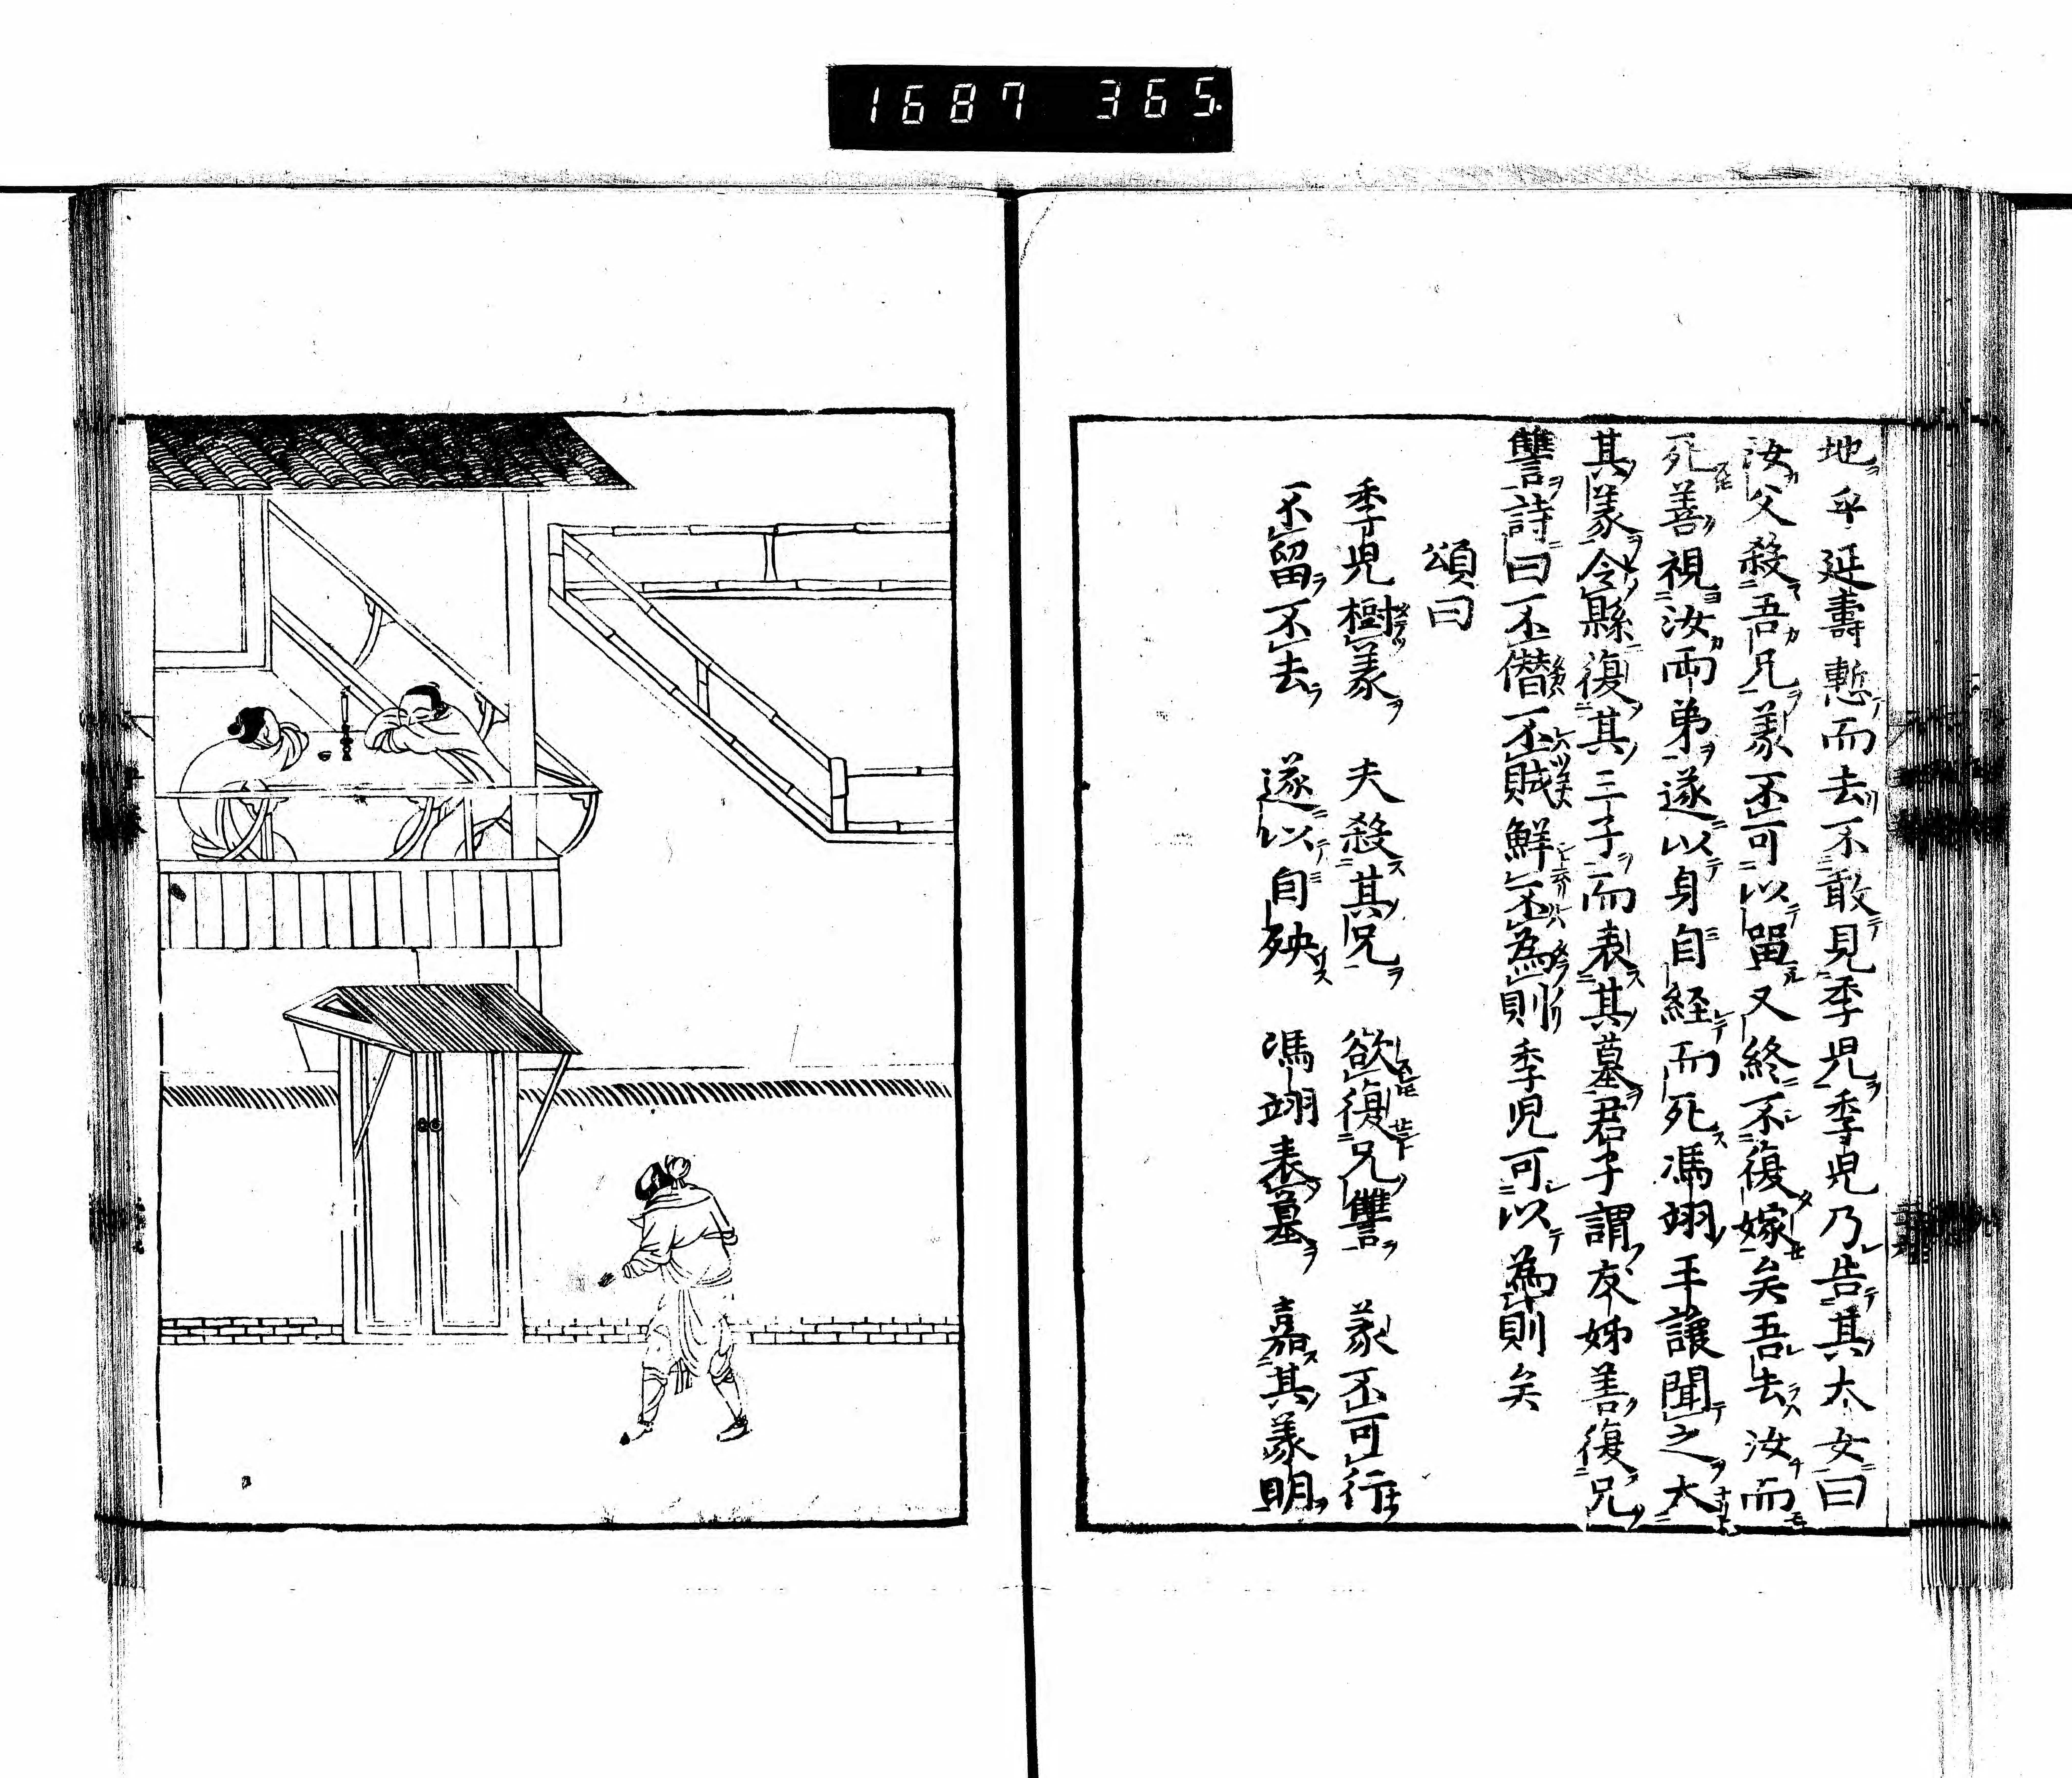 1687 365.
地乎延壽慙而去不敢見季児季児乃告其太女曰
汝父殺吾兄義不可以留又終不復嫁矣吾去汝而
死善視汝両弟遂以身自経而死馮翊王讓聞之大
其義令縣復其三子而表其墓君子謂友姊善復兄
讐詩曰不僭不賊鮮不為則季児可以為則矣
頌曰
季児樹義　夫殺其兄　欲復兄讐　義不可行
不留不去　遂以自殃　馮翊表墓　嘉其義明